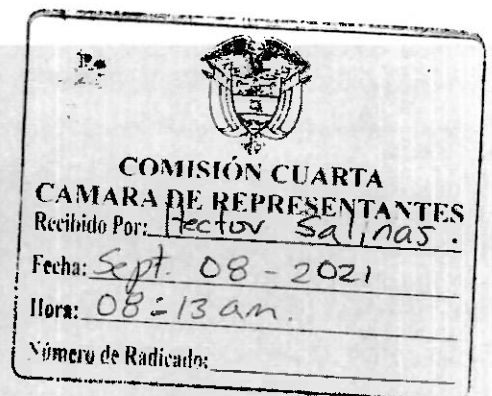 COMISIÓN CUARTA
CAMARA DE REPRESENTANTES
Recibido Por: Hector Salinas.
Fecha: Sept. 08 - 2021
Hora: 08:13 am.
Número de Radicado: